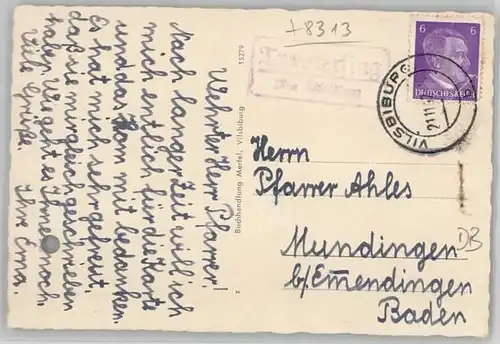 Wehrter Herr Pfarrer!
Nach langer Zeit will ich
mich entlich für die Karte
und das Korn mit bedanken.
Es hat mich sehr gefreut,
daß sie mir geschrieben
haben. Wie geht es Ihnen noch
Viele Grüße. Ihre Erna.
Buchhandlung Mertel, Vilsbiburg 15279
+8313
über Vilsbiburg
VILSBIBURG
21.11.
6 6
DEUTSCHES REICH
Herrn
Pfarrer Ahles
Mundingen
b/Emendingen
Baden
DB